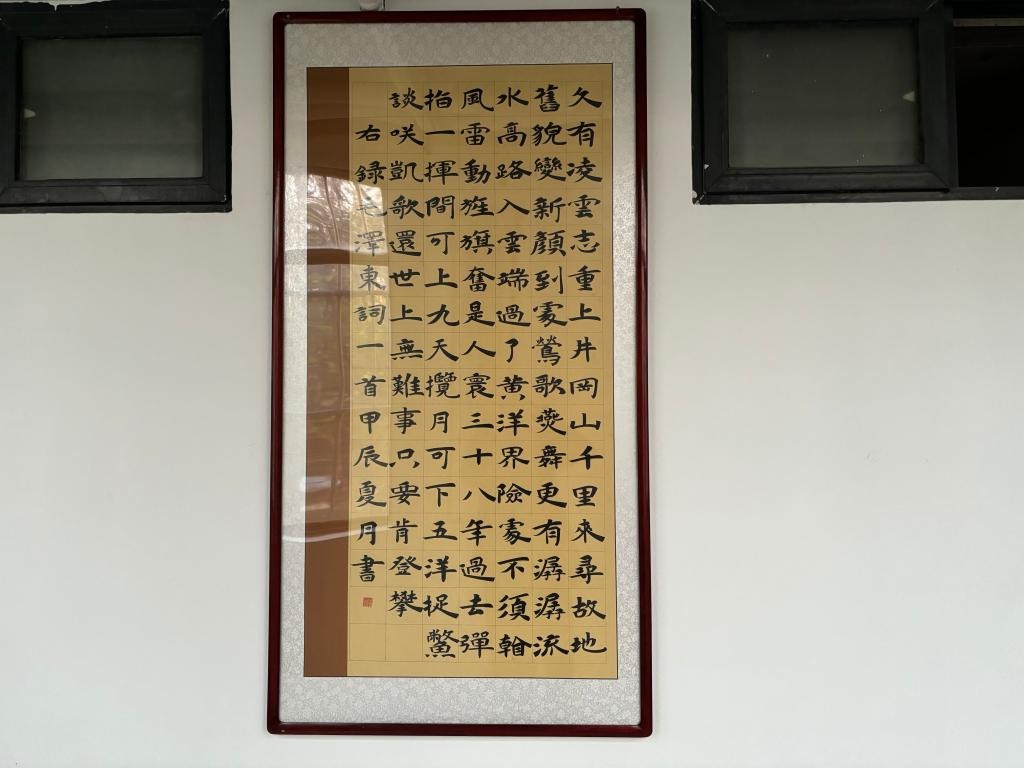 久有凌雲志重上井岡山千里來尋故地
舊貌變新顏到處鶯歌燕舞更有潺潺流
水高路入雲端過了黃洋界險處不須看
風雷動旌旗奮是人寰三十八年過去彈
指一揮間可上九天攬月可下五洋捉鱉
談咲凱歌還世上無難事只要肯登攀
右錄毛澤東詞一首甲辰夏月書